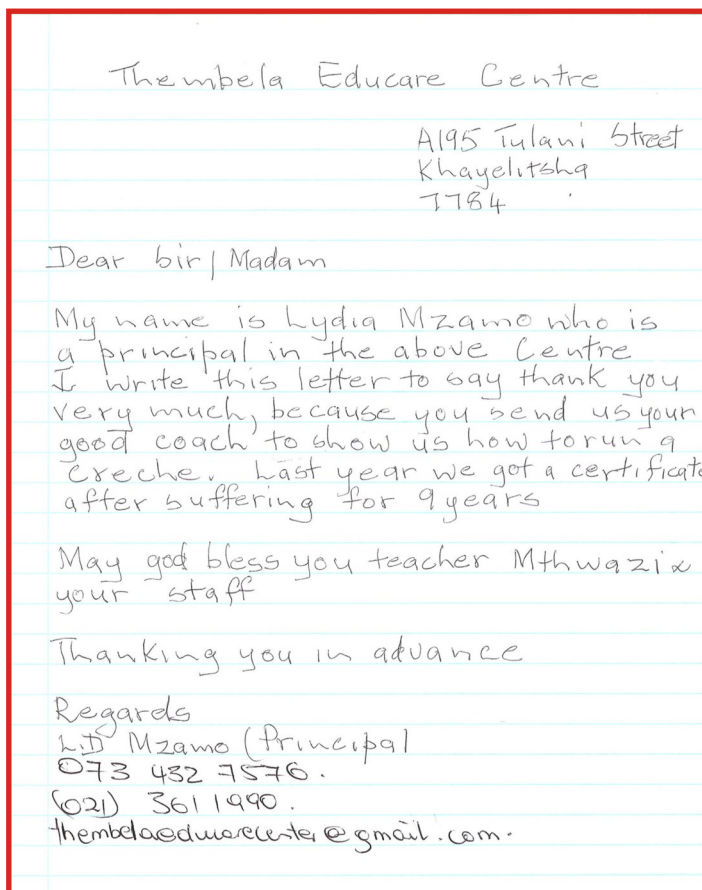 Thembela Educare Centre
A195 Tulani Street
Khayelitsha
7784
Dear Sir / Madam
My name is Lydia Mzamo who is
a principal in the above Centre
I write this letter to say thank you
very much, because you send us your
good coach to show us how to run a
creche. Last year we got a certificate
after suffering for 9 years
May god bless you teacher Mthwazi &
your staff
Thanking you in advance
Regards
L.D Mzamo (Principal
073 432 7576.
(021) 361 1990.
thembelaeducarecenter@gmail.com.